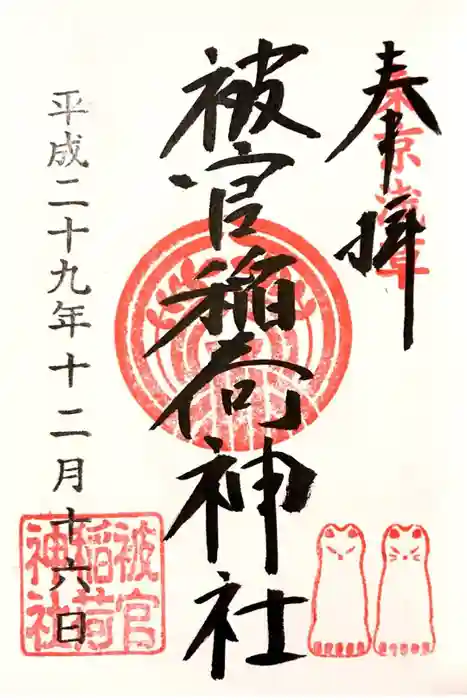 奉拝
東京浅草
被官稲荷神社
平成二十九年十二月十六日
被官
稲荷
神社